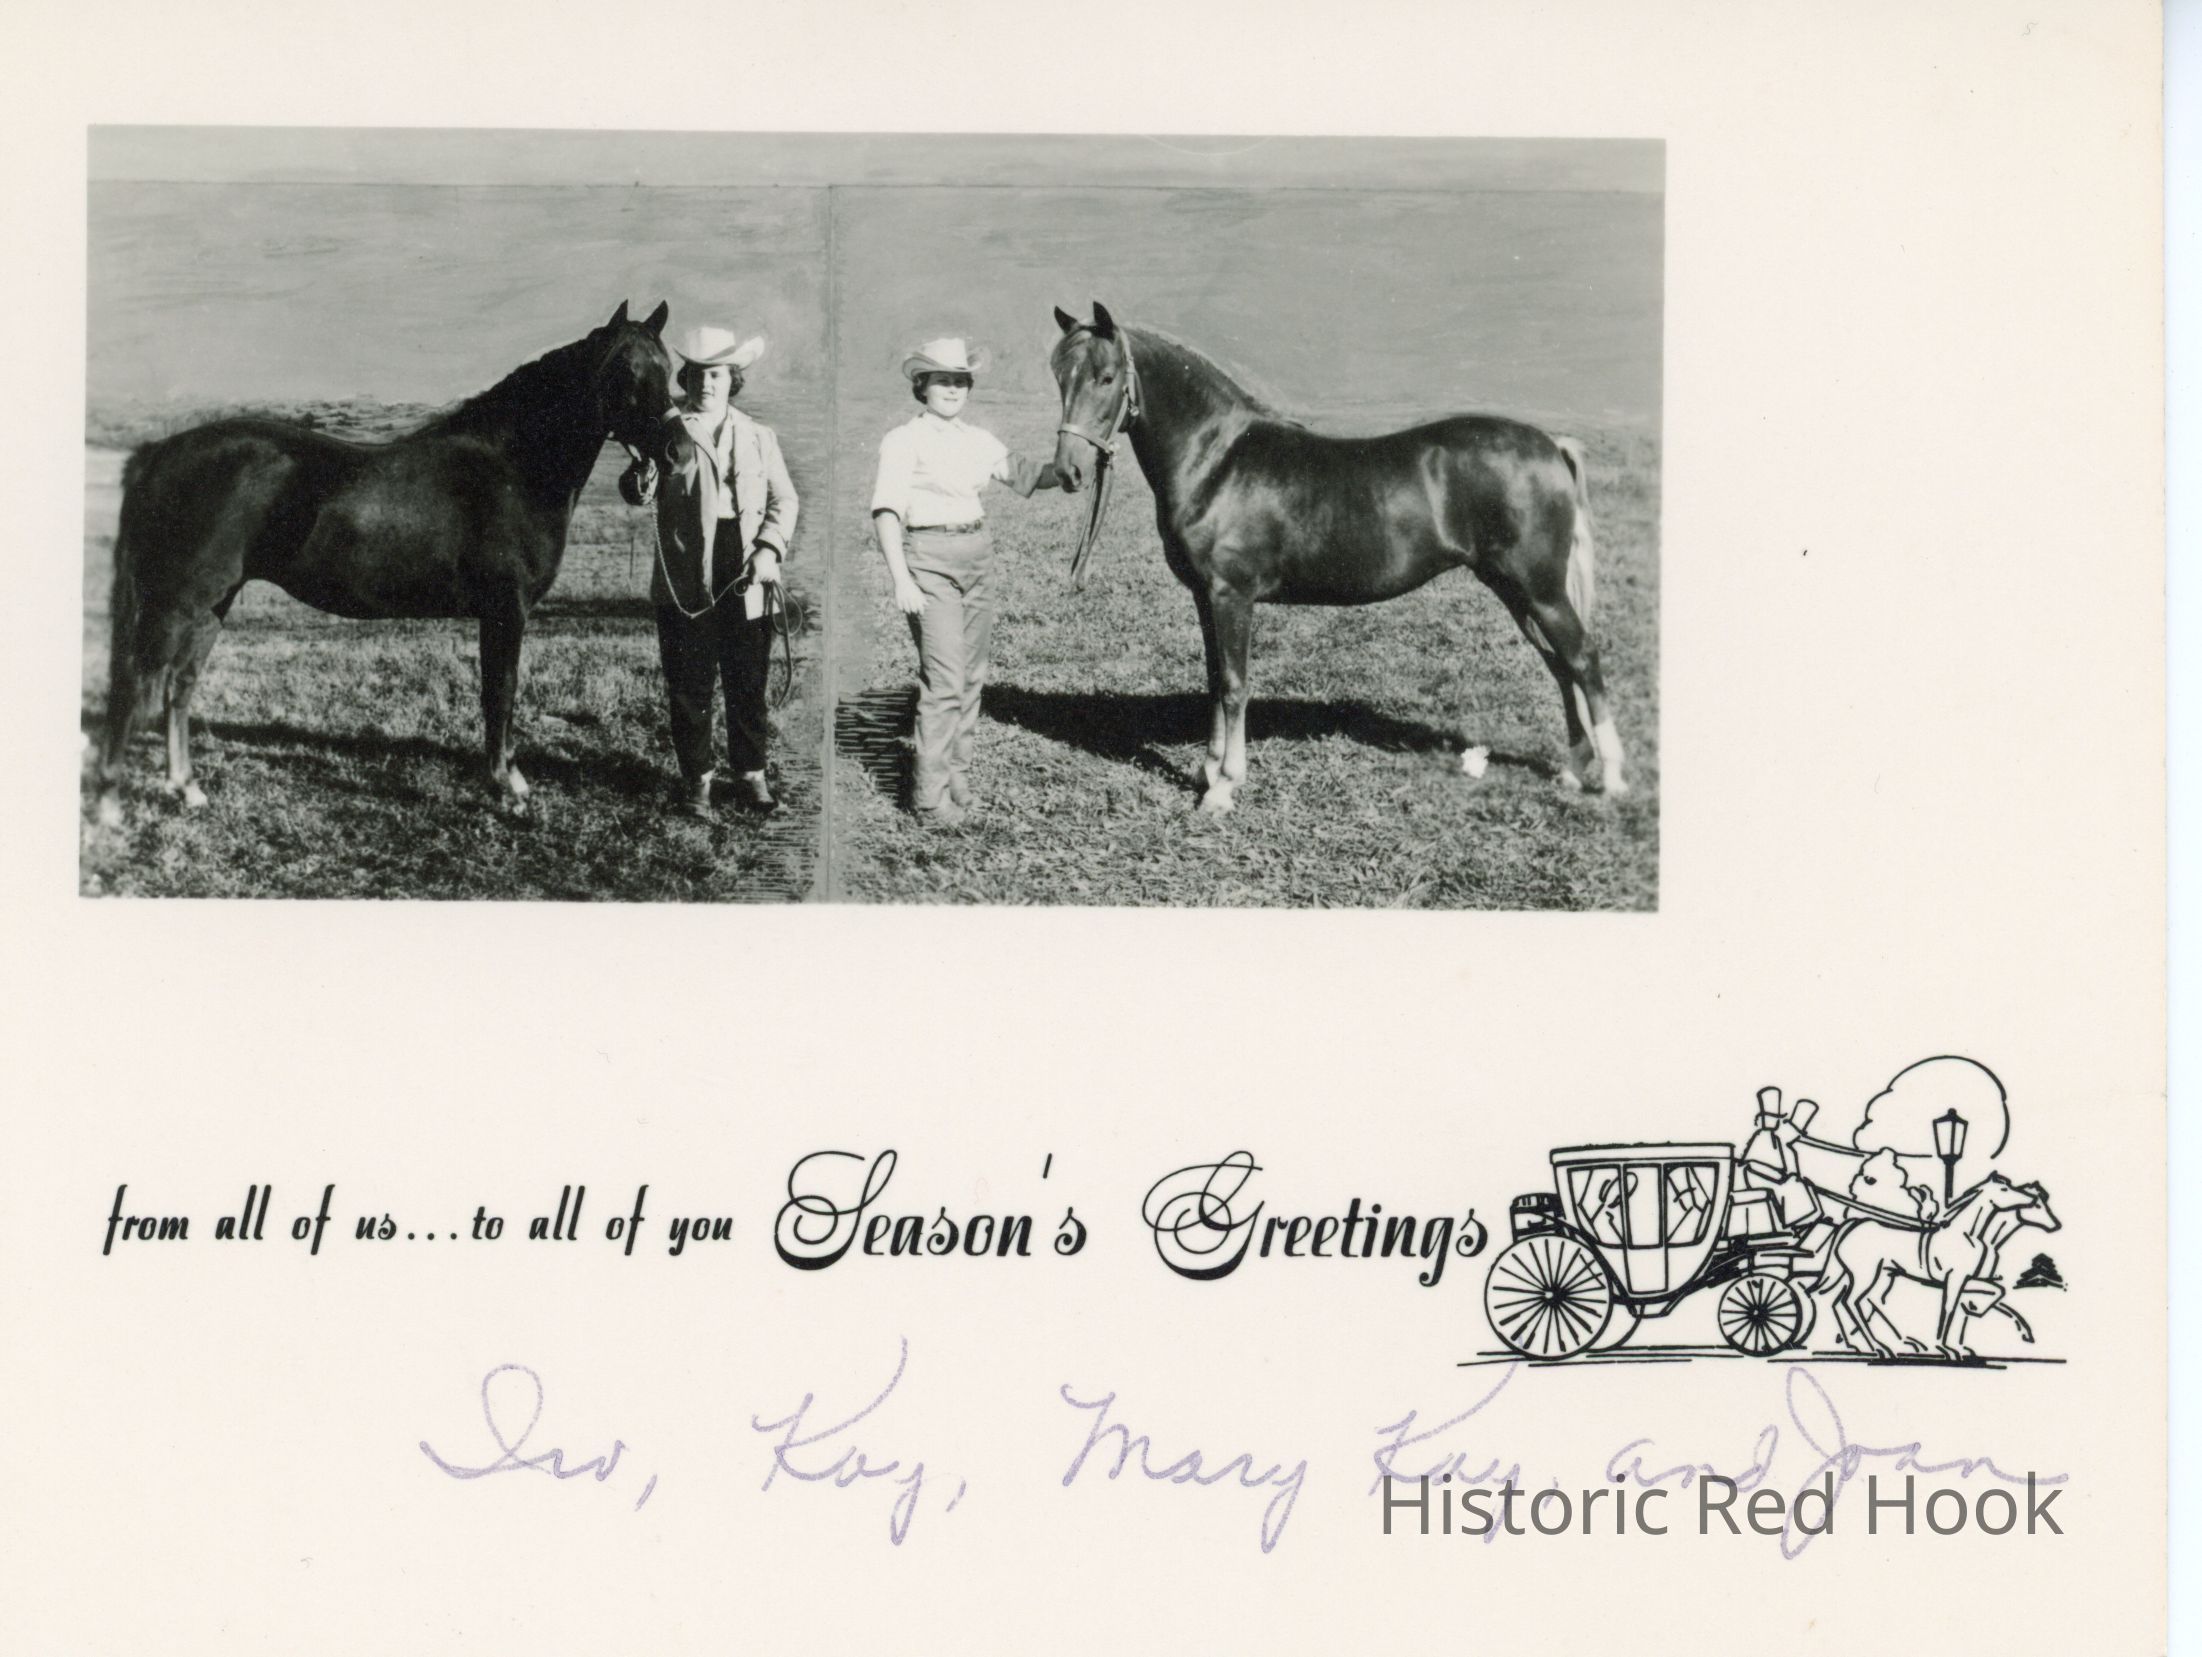 from all of us...to all of you Season's Greetings
Irv, Kay, Mary Kay, and Joan
Historic Red Hook